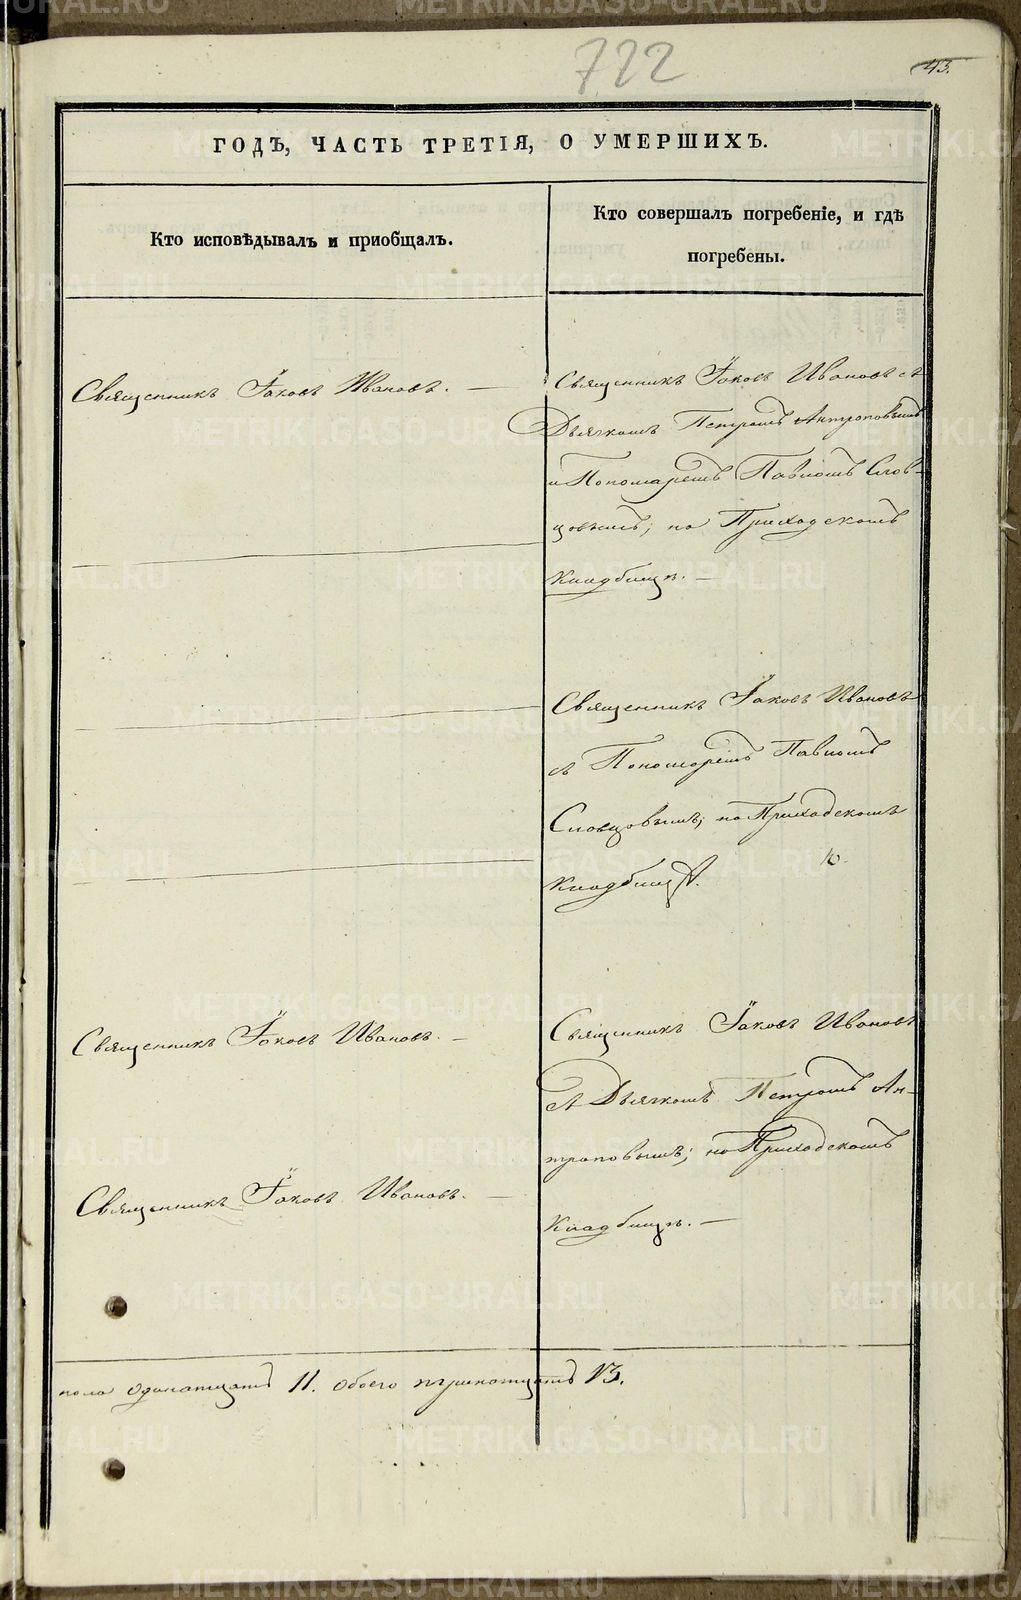 722
43.
ГОДЪ, ЧАСТЬ ТРЕТІЯ, О УМЕРШИХЪ.
Кто исповѣдывалъ и приобщалъ.
Кто совершалъ погребеніе, и гдѣ
погребены.
Священникъ Іаковъ Ивановъ. —
Священникъ Іаковъ Ивановъ съ
Дьячкомъ Петромъ Антроповымъ
и Пономаремъ Павломъ Слов-
цовымъ; на Приходскомъ
кладбищѣ. —
Священникъ Іаковъ Ивановъ
съ Пономаремъ Павломъ
Словцовымъ; на Приходскомъ
кладбищѣ.
Священникъ Іаковъ Ивановъ. —
Священникъ Іаковъ Ивановъ
съ Дьячкомъ Петромъ Ан-
троповымъ; на Приходскомъ
Священникъ Іаковъ Ивановъ. —
кладбищѣ. —
пола одинатцать 11. обоего тринатцать 13.
METRIKI.GASO-URAL.RU